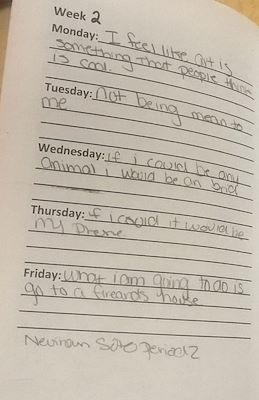 Week 2
Monday: I feel like art is
something that people think
is cool.
Tuesday: Not being mean to
me
Wednesday: if i could be any
animal i would be an brid
Thursday: if i could it would be
my
Friday: what i am going to do is
go to a house
period 2